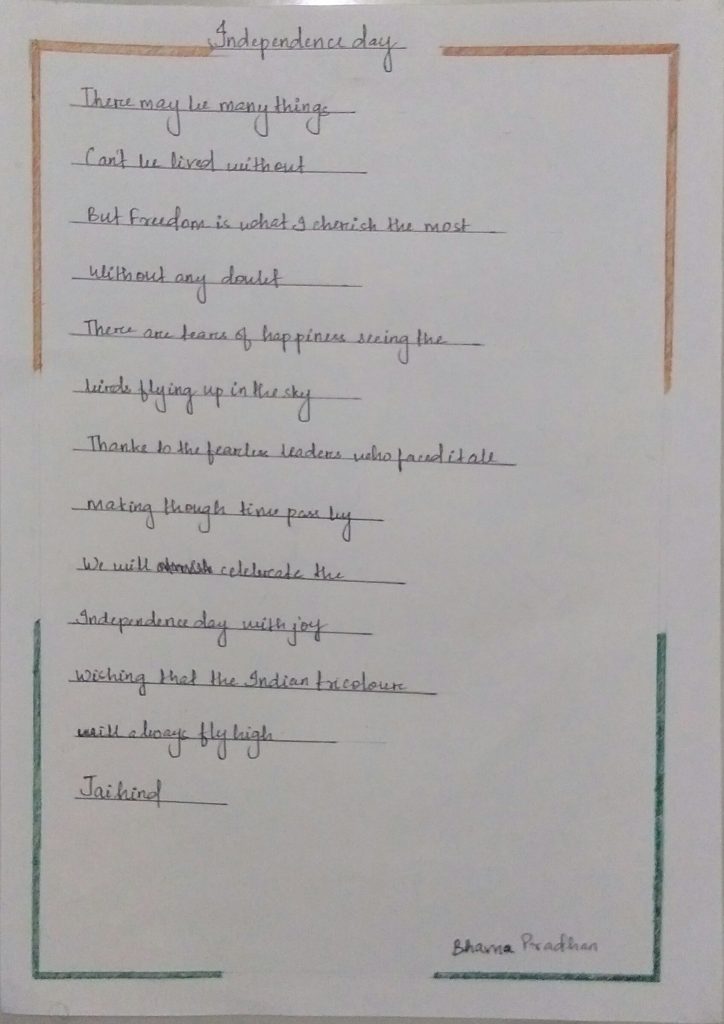 Independence day
There may be many things
Can't be lived without
But Freedom is what I cherish the most
Without any doubt
There are tears of happiness seeing the
birds flying up in the sky
Thanks to the fearless leaders who faced it all
making though time pass by
We will celebrate the
Independence day with joy
Wishing that the Indian tricolour
will always fly high
Jai hind
Bhavna Pradhan